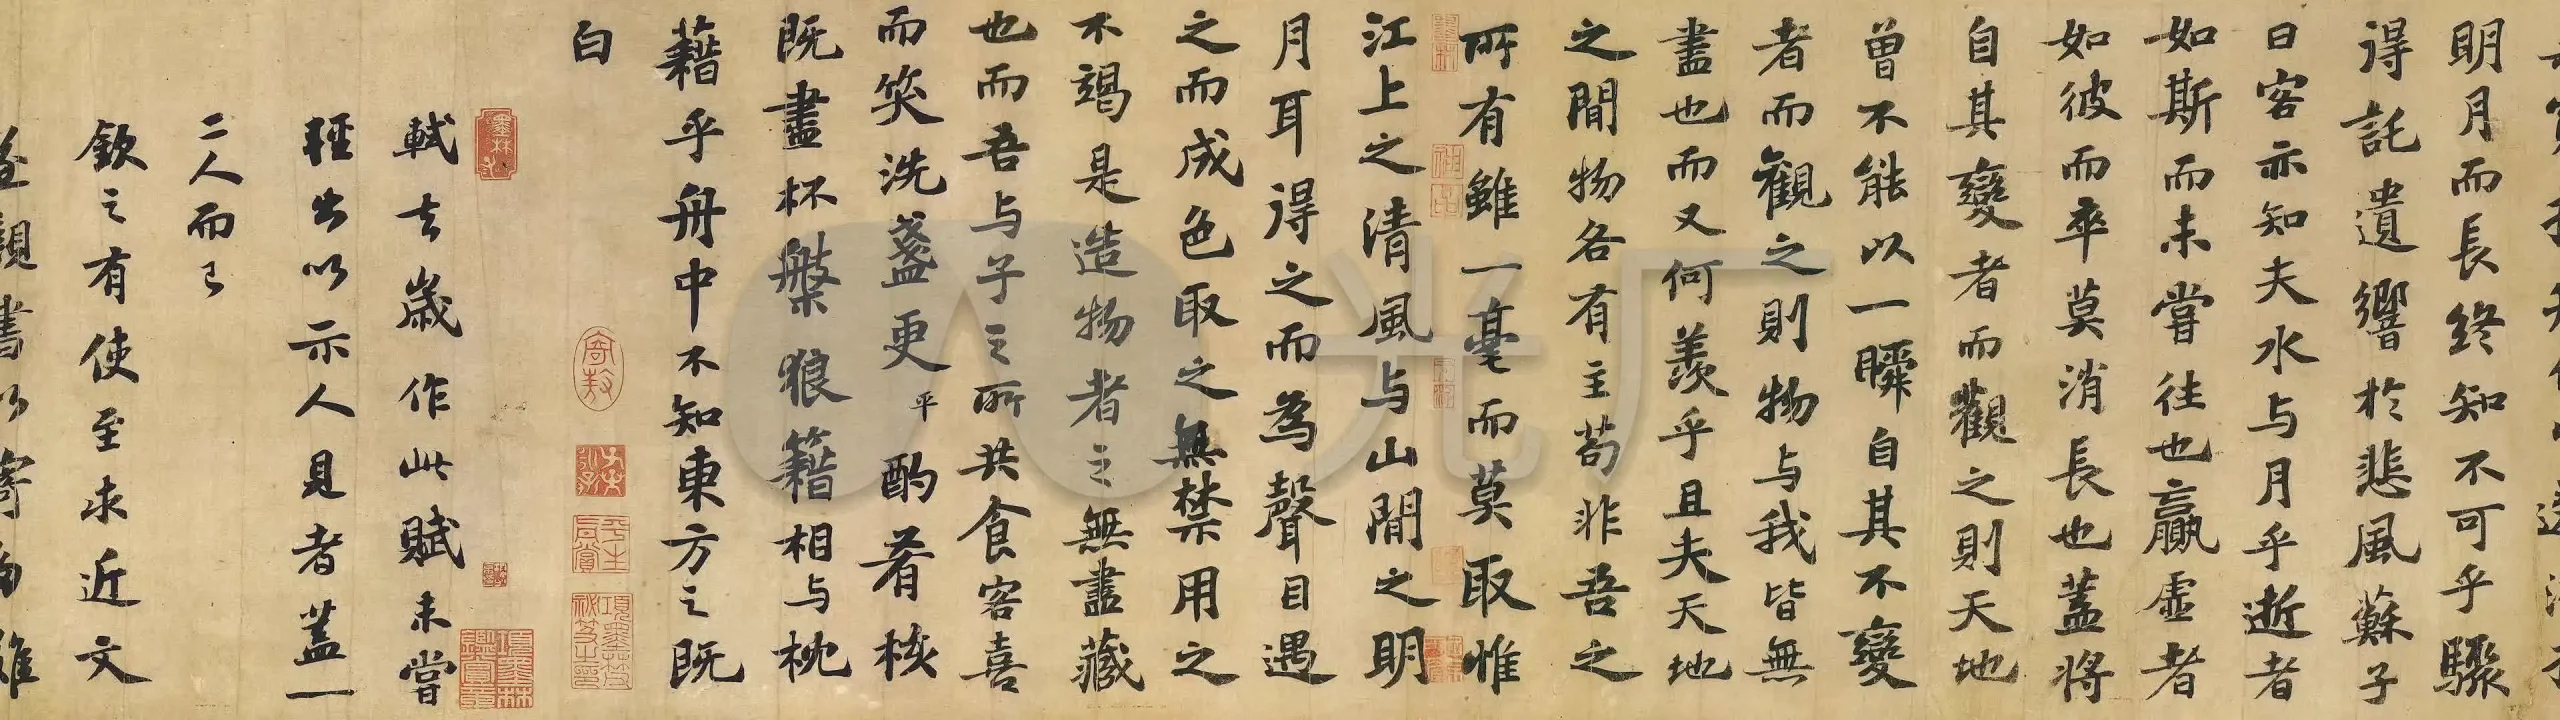 明月而長終知不可乎驟
得託遺響於悲風蘇子
曰客亦知夫水与月乎逝者
如斯而未嘗往也贏虛者
如彼而卒莫消長也蓋將
自其變者而觀之則天地
曾不能以一瞬自其不變
者而觀之則物与我皆無
盡也而又何羨乎且夫天地
之間物各有主苟非吾之
所有雖一毫而莫取惟
江上之清風与山間之明
月耳得之而為聲目遇
之而成色取之無禁用之
不竭是造物者之無盡藏
也而吾与子之所共食客喜
而笑洗盞更平酌肴核
既盡杯槃狼籍相与枕
藉乎舟中不知東方之既
白
軾去歲作此賦未嘗
輕出以示人見者蓋一
二人而已
欽之有使至求近文
遂親書以寄
光厂